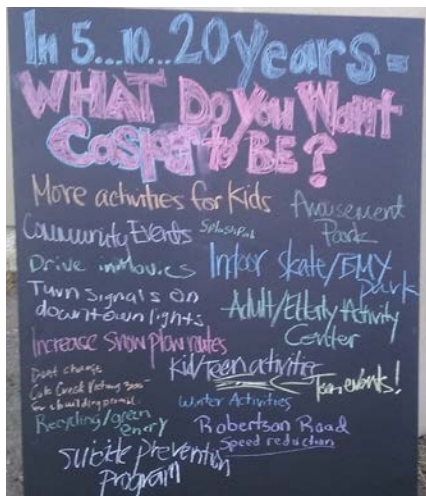 In 5...10...20 years-
WHAT Do You Want
Casper to BE?
More activities for Kids
Amusement
Park
Community Events
SplashPad
Drive in Movies
Indoor skate/BMX
Park
Turn signals on
downtown lights
Adult/Elderly Activity
Center
Increase snow plow routes
Kid/Teen activities
Teen events!
Dont charge
for a building permit.
Winter Activities
Recycling/green
enery
Robertson Road
Speed reduction
Suicide Prevention
Program